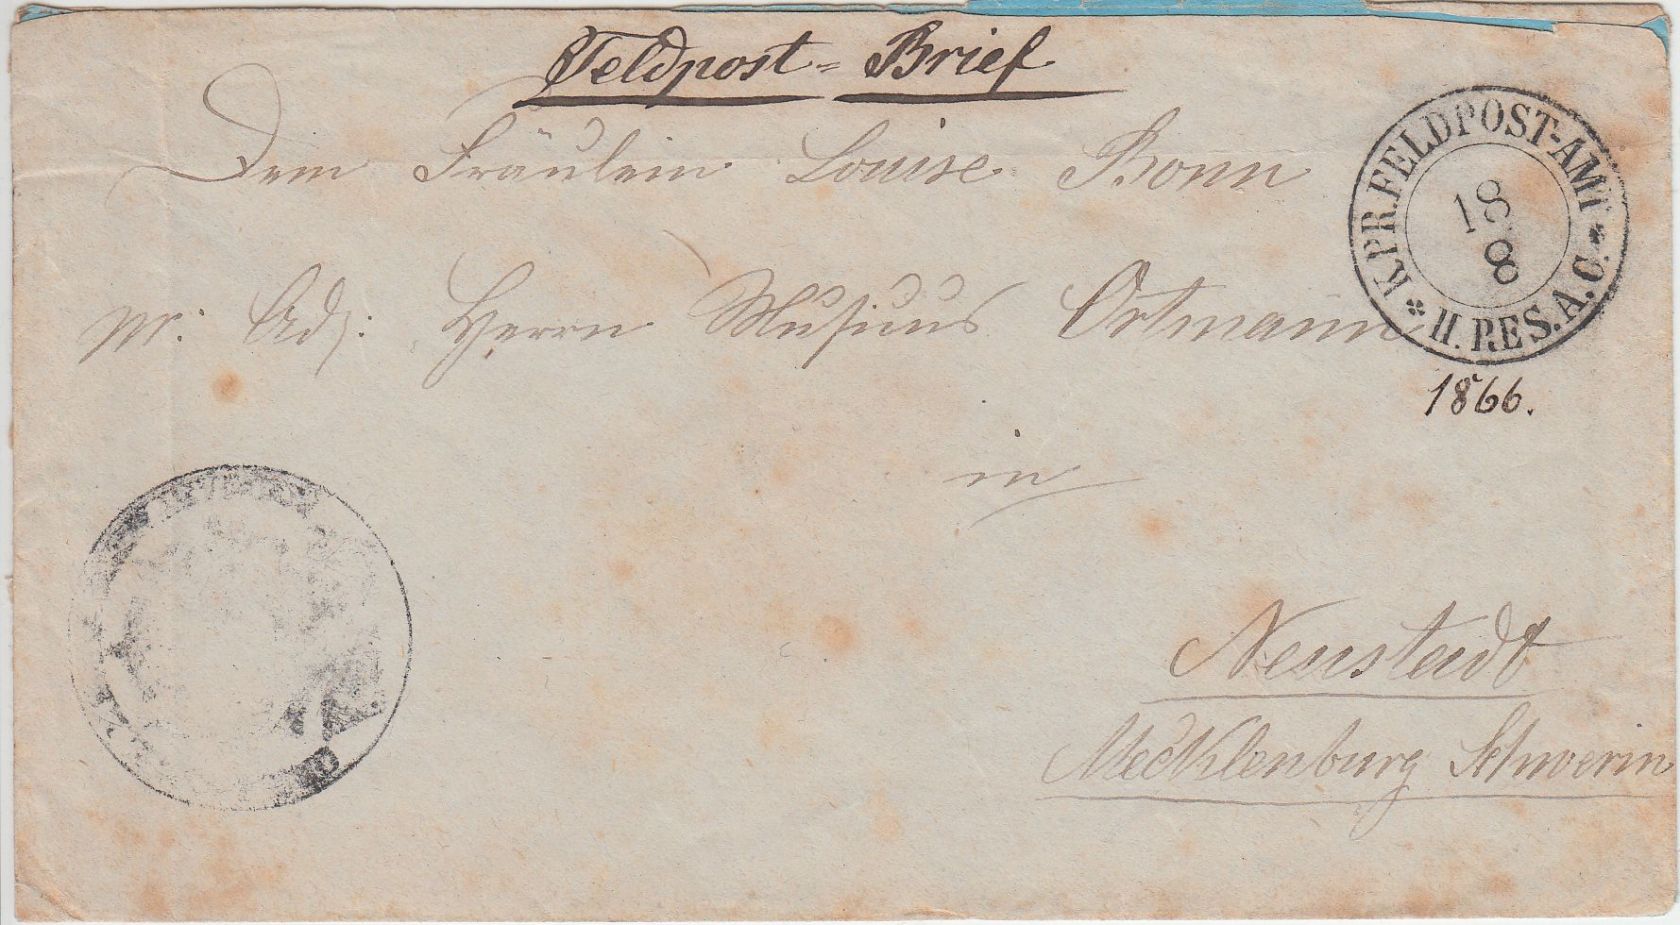 Feldpost-Brief
Dem Fräulein Louise Bonn
K.PR.FELDPOST-AMT
18
8
II. RES. A. C.
m: Adr: Herrn Musicus Ortmann
1866.
in
Neustadt
Mecklenburg Schwerin